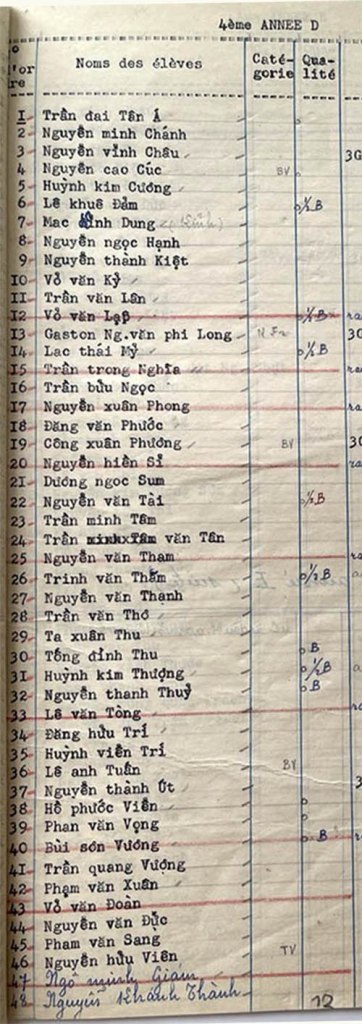 4ème ANNEE D
l'or Noms des élèves Caté- Qua-
re gorie lité
I- Trần đai Tân Á
2- Nguyễn minh Chánh
3- Nguyễn vĩnh Châu 30
4 Nguyễn cao Cúc BV
5 Huỳnh kim Cương
6 Lê khuê Đảm ½B
7- Mac Dung
8- Nguyễn ngọc Hạnh
9- Nguyễn thành Kiệt
IO Võ văn Kỷ
II Trần văn Lân
I2 Võ văn ½B ra
I3 Gaston Ng.văn phi Long 30
I4 Lac thái Mỹ ½B
I5 Trần trong Nghĩa ra
I6 Trần bửu Ngọc
I7 Nguyễn xuân Phong ra
I8 Đăng văn Phước
I9 Công xuân Phương BV 30
20 Nguyễn hiền Sỉ ra
2I- Dương ngoc Sum
22 Nguyễn văn Tài ½B
23- Trần minh Tâm
24- Trần văn Tân
25 Nguyễn văn Tham ra
26- Trinh văn Thấm ½B
27- Nguyễn văn Thạnh
28 Trần văn Thơ
29- Ta xuân Thu
30 Tống đình Thu B
3I Huỳnh kim Thượng ½B
32 Nguyễn thanh Thuỷ B
33 Lê văn Tòng
34 Đăng hữu Trí
35 Huỳnh viễn Trí
36- Lê anh Tuấn BV
37- Nguyễn thành Út
38- Hồ phước Viên
39- Phan văn Vọng
40 Bùi sơn Vương B
4I- Trần quang Vượng
42- Phạm văn Xuân
43 Võ văn Đoàn
44 Nguyễn văn Đực
45 Pham văn Sang
46- Nguyễn hữu Viên TV
47- Ngô minh Giam
48- Nguyễn Khánh Thành 12